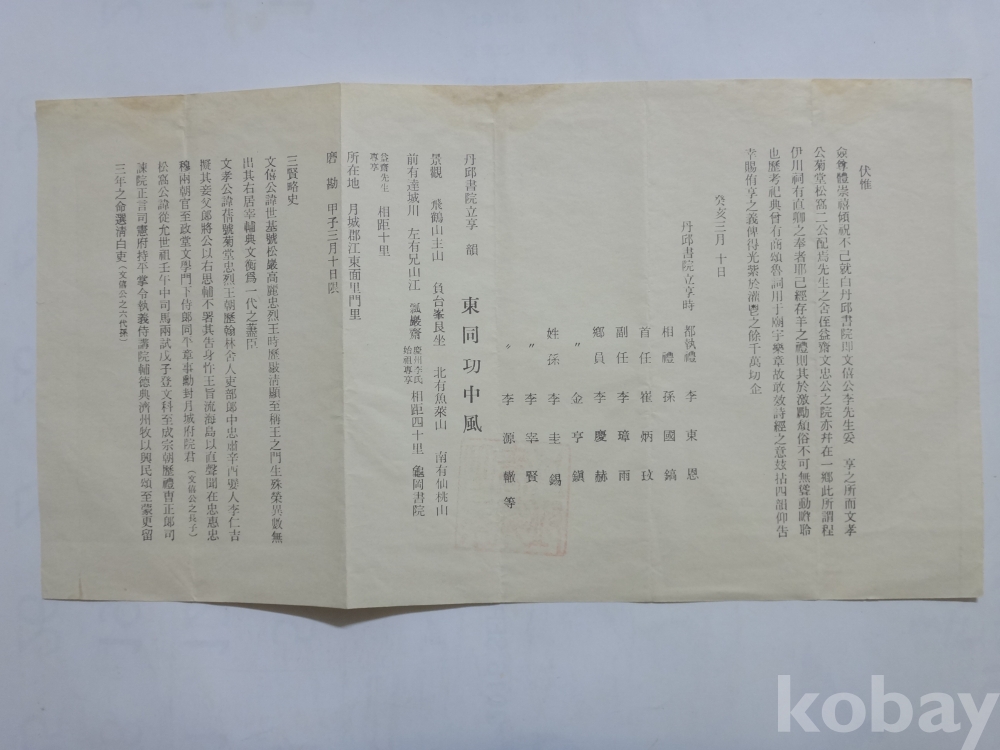 伏惟
僉尊體崇禧傾祝不已就白丹邱書院即文僖公李先生妥 享之所而文孝
公菊堂松窩二公配焉先生之舍侄益齋文忠公之院亦幷在一鄉此所謂程
伊川祠有直卿之奉者耶已經存羊之禮則其於激勵頹俗不可無聳動瞻聆
也歷考祀典曾有商頌魯詞用于廟宇樂章故敢效詩經之意玆拈四韻仰告
幸賜侑享之義俾得光紫於灌鬯之餘千萬切企
癸亥三月 十日
丹邱書院立享時
都執禮 李東恩
相禮 孫國鎬
首任 崔炳玟
副任 李璋雨
鄕員 李慶赫
〃 金亨鎭
姓孫 李圭錫
〃 李宰賢
〃 李源轍等
丹邱書院立享 韻 東同功中風
景觀 飛鶴山主山 負台峯艮坐 北有魚萊山 南有仙桃山
前有達城川 左有兄山江 瓢巖齋 慶州李氏始祖專享 相距四十里 龜岡書院
益齋先生專享 相距十里
所在地 月城郡江東面里門里
磨勘 甲子三月十日限
三賢略史
文僖公諱世基號松巖高麗忠烈王時歷敭淸顯至柄王之門生殊榮異數無
出其右居宰輔典文衡爲一代之藎臣
文孝公諱蒨號菊堂忠烈王朝歷翰林舍人吏部郞中忠肅辛酉嬖人李仁吉
擬其妾父郞將公以右思輔不署其告身忤王旨流海島以直聲聞在忠惠忠
穆兩朝官至政堂文學門下侍郞同平章事勳封月城府院君(文僖公之長子)
松窩公諱從允世祖壬午中司馬兩試戊子登文科至成宗朝歷禮曺正郞司
諫院正言司憲府持平掌令執義侍講院輔德典濟州牧以興民頌至蒙更留
三年之命選淸白吏(文僖公之六代孫)
kobay